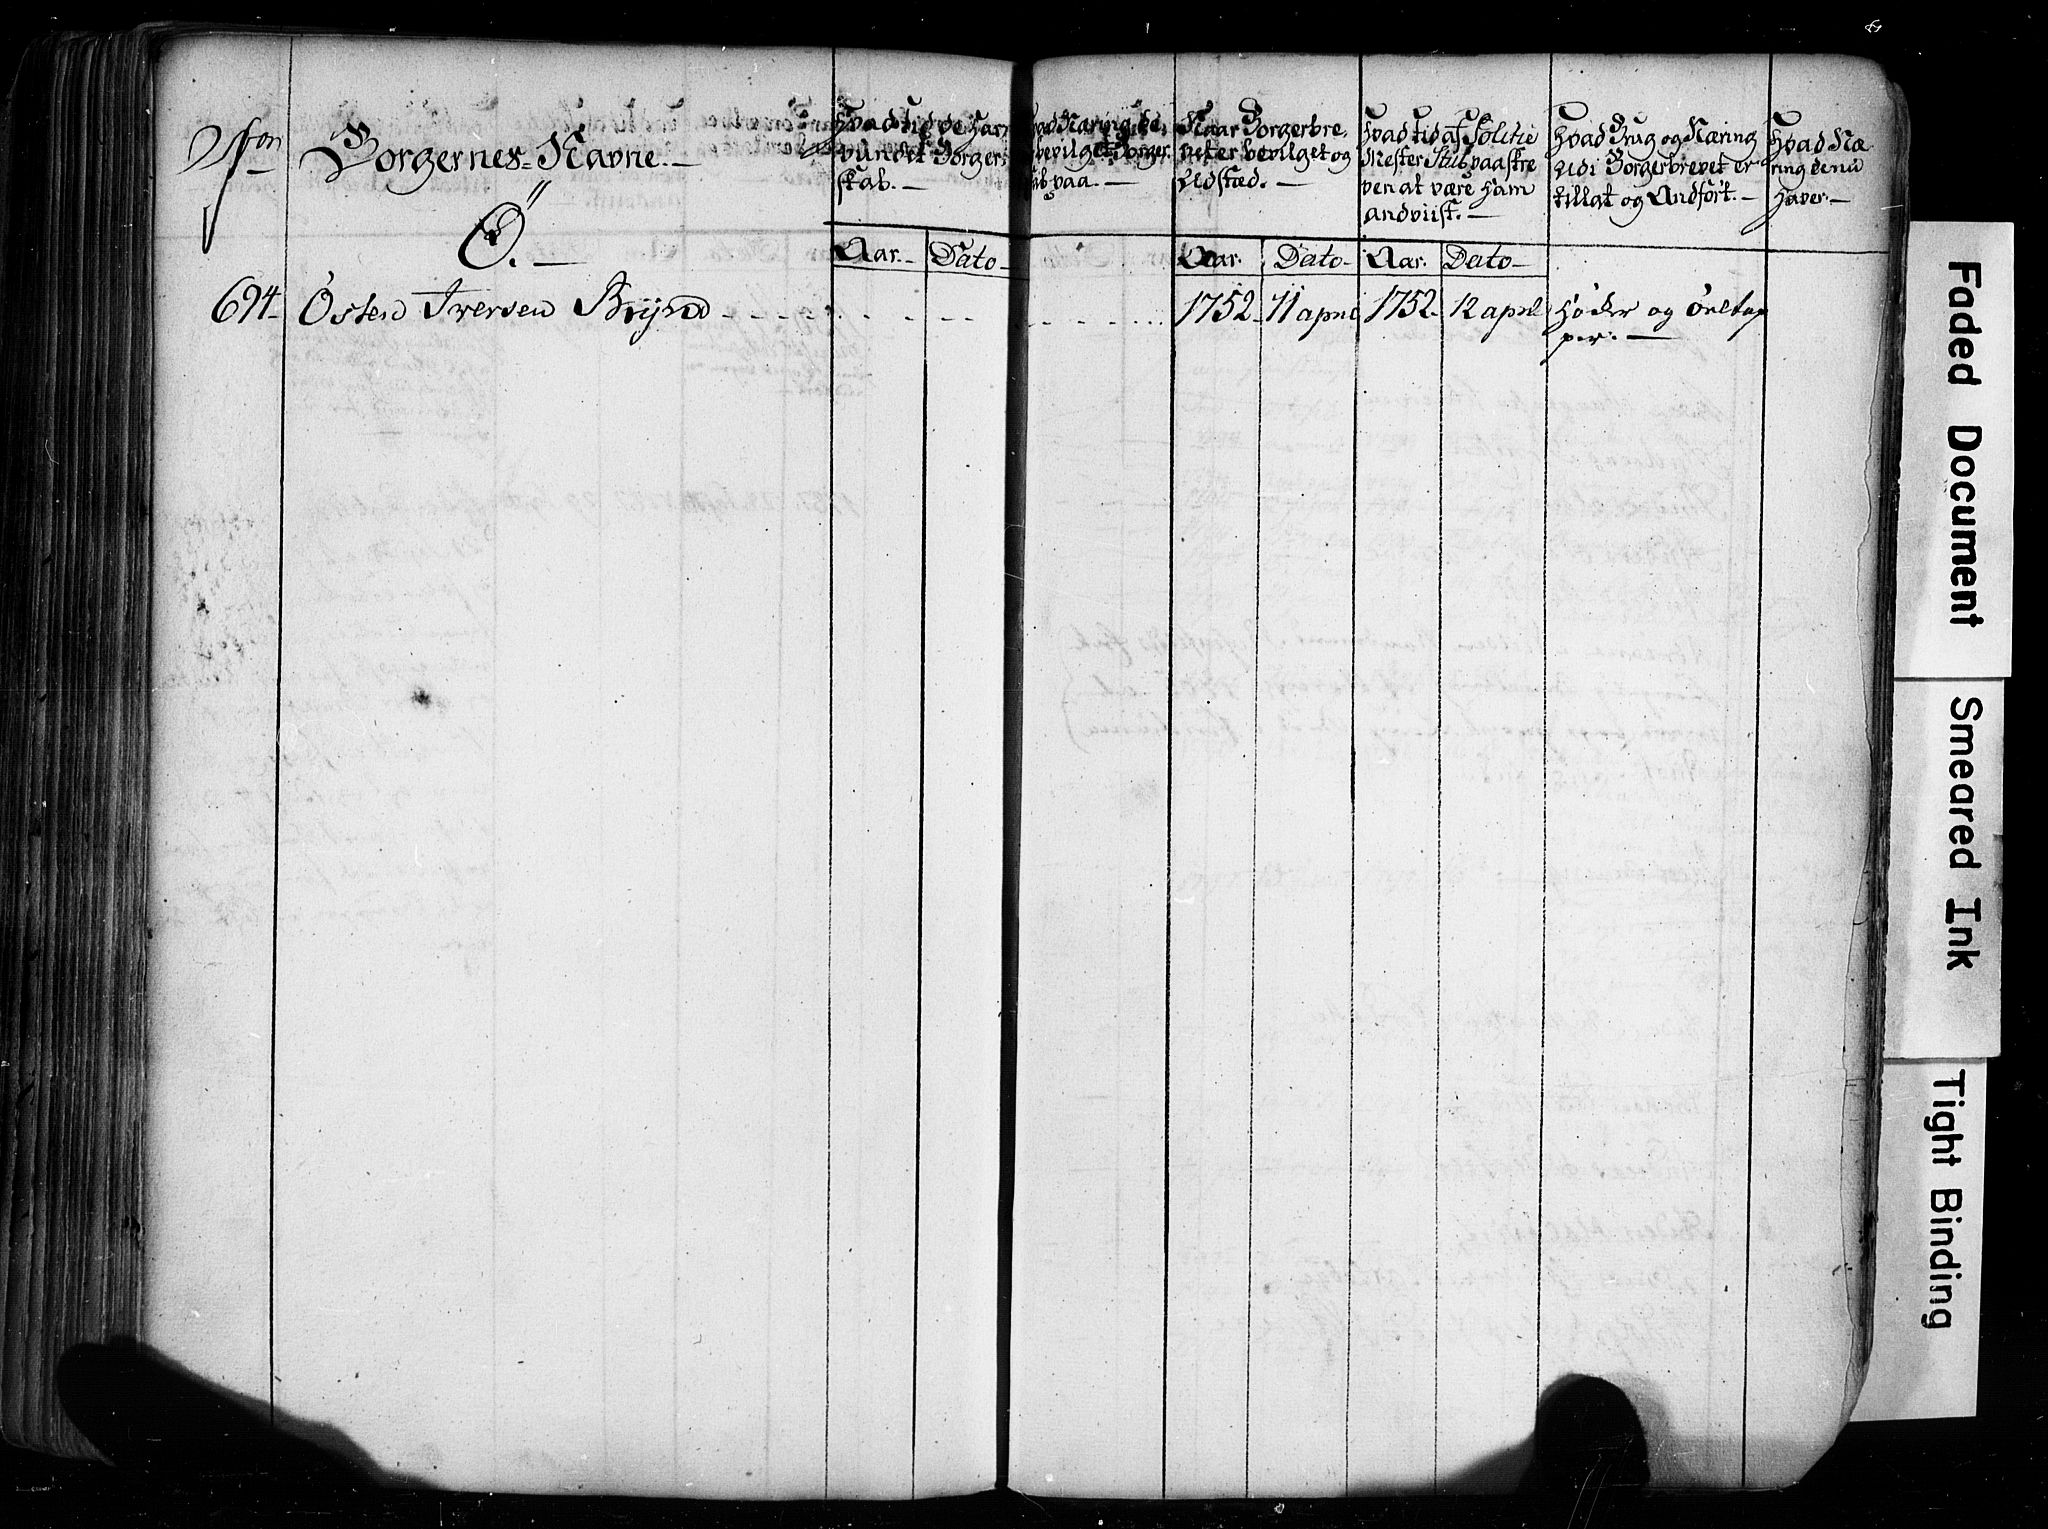 Borgernes Navne.
Ö.
Hvad Tid de har
vundet Borger-
skab.
Hvad Næring de
bevilget Borger-
skab paa.
Naar Borgerbre-
vet er bevilget og
Udstæd.
Hvad tid af Politie
Mester Stub paaskre
ven at være ham
andviist.
Hvad Brug og Næring
Udi Borgerbrevet er
tillat og Andfört.
Hvad Næ
ring de nu
haver.
Aar. Dato Aar. Dato Aar. Dato
694. Östen Iversen Brÿnd 1752. 11 april 1752. 12 april Höcker og Öeltap
per.
Faded Document
Smeared Ink
Tight Binding